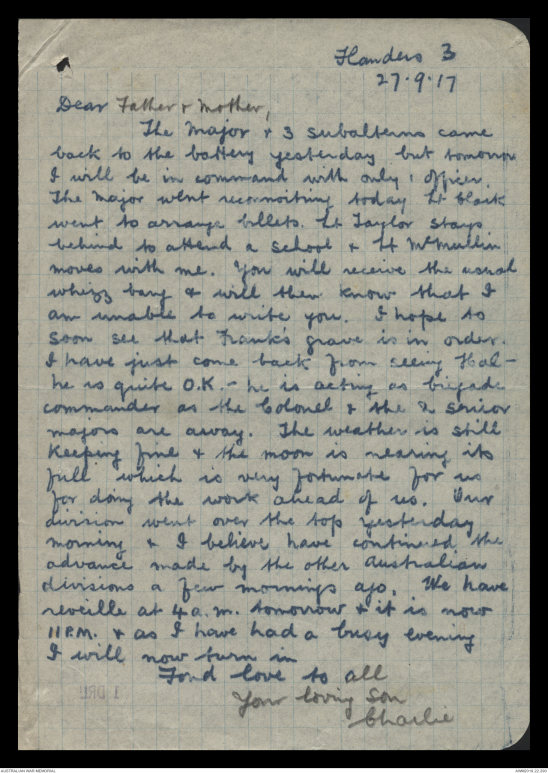 Flanders 3
27.9.17
Dear Father & Mother,
The Major & 3 subalterns came
back to the battery yesterday but tomorrow
I will be in command with only 1 officer.
The Major went reconnoitring today Lt Clark
went to arrange billets. Lt Taylor stays
behind to attend a school & Lt McMullin
moves with me. You will receive the usual
whizz bang & will then know that I
am unable to write you. I hope to
soon see that Frank's grave is in order.
I have just come back from seeing Hal -
he is quite O.K. - he is acting as brigade
commander as the Colonel & the 2 senior
majors are away. The weather is still
keeping fine & the moon is nearing its
full which is very fortunate for us
for doing the work ahead of us. Our
division went over the top yesterday
morning & I believe have continued the
advance made by the other Australian
divisions a few mornings ago. We have
reveille at 4 a.m. tomorrow & it is now
11 P.M. & as I have had a busy evening
I will now turn in
Fond love to all
Your loving Son
Charlie
AUSTRALIAN WAR MEMORIAL